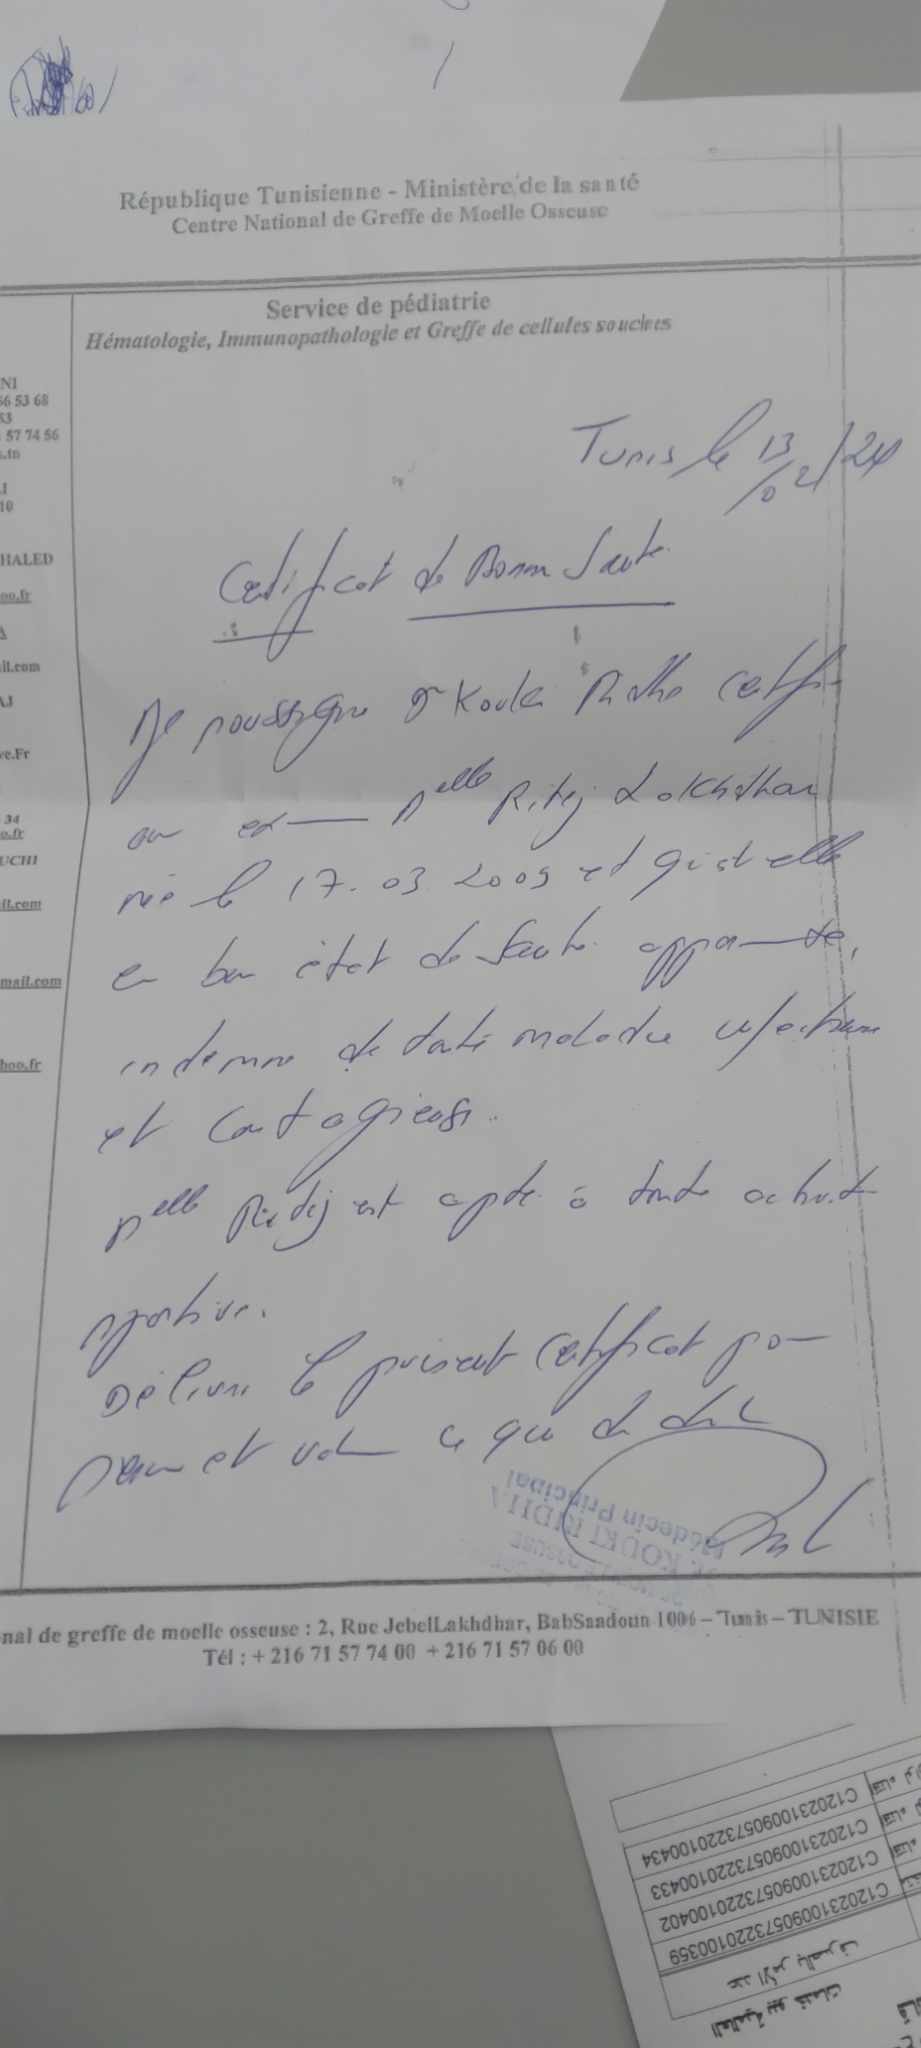 République Tunisienne - Ministère de la santé
Centre National de Greffe de Moelle Osseuse
Service de pédiatrie
Hématologie, Immunopathologie et Greffe de cellules souches
NI
66 53 68
53
57 74 56
s.tn
.I
10
HALED
oo.fr
A
il.com
AJ
ve.Fr
34
o.fr
UCHI
il.com
mail.com
hoo.fr
Tunis le 13/02/24
Certificat de Bonne Santé
Je soussigné Dr Kouki Ridha certifie
Melle Ritej Lakhdhar
née le 17.03.2009 et qu'est elle
en bon état de santé apparente,
indemne de toute maladie infectieuse
et contagieuse.
Melle Ritej est apte à toute activité
sportive.
Délivré le présent certificat pour
servir et valoir ce que de droit
Médecin Principal
KOUKI RIDHA
nal de greffe de moelle osseuse : 2, Rue JebelLakhdhar, BabSaadoun 1006 – Tunis – TUNISIE
Tél : + 216 71 57 74 00 + 216 71 57 06 00
C12023100905732201 00434
C1202310090573220100433
C1202310090573220100402
C1202310090573220100359
عدد الأمر بالصرف